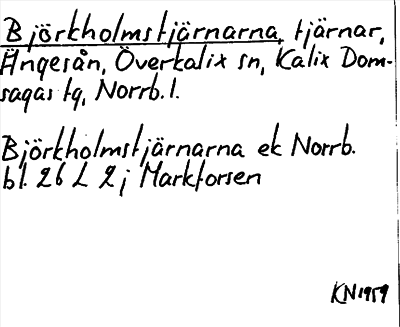 Björkholmstjärnarna, tjärnar,
Ängesån, Överkalix sn, Kalix Dom-
sagas tg, Norrb. l.
Björkholmstjärnarna ek Norrb.
bl. 26 L 2 j Markforsen
KN 1959